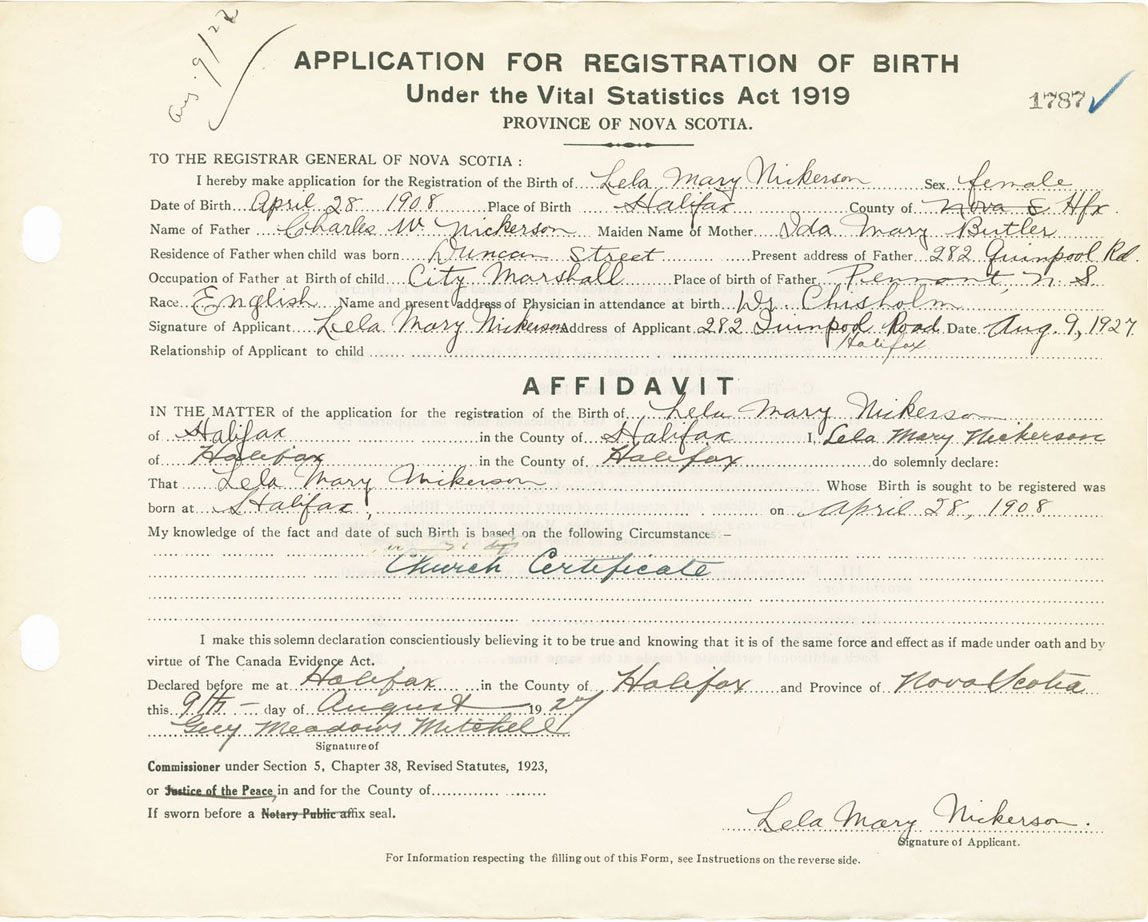 Aug. 9/27
APPLICATION FOR REGISTRATION OF BIRTH
Under the Vital Statistics Act 1919
1787
PROVINCE OF NOVA SCOTIA.
TO THE REGISTRAR GENERAL OF NOVA SCOTIA :
I hereby make application for the Registration of the Birth of Lela Mary Nickerson Sex female
Date of Birth April 28 1908 Place of Birth Halifax County of Nova S Hfx.
Name of Father Charles W Nickerson Maiden Name of Mother Ida Mary Butler
Residence of Father when child was born Duncan Street Present address of Father 282 Quinpool Rd.
Occupation of Father at Birth of child City Marshall Place of birth of Father N. S
Race English Name and present address of Physician in attendance at birth Dr. Chisholm
Signature of Applicant Lela Mary Nickerson Address of Applicant 282 Quinpool Road Date Aug. 9, 1927.
Halifax
Relationship of Applicant to child
AFFIDAVIT
IN THE MATTER of the application for the registration of the Birth of Lela Mary Nickerson
of Halifax in the County of Halifax I, Lela Mary Nickerson
of Halifax in the County of Halifax do solemnly declare:
That Lela Mary Nickerson Whose Birth is sought to be registered was
born at Halifax, on April 28, 1908
My knowledge of the fact and date of such Birth is based on the following Circumstance :–
Church Certificate
I make this solemn declaration conscientiously believing it to be true and knowing that it is of the same force and effect as if made under oath and by
virtue of The Canada Evidence Act.
Declared before me at Halifax in the County of Halifax and Province of Nova Scotia
this 9th – day of August 1927
Guy Meadows Mitchell
Signature of
Commissioner under Section 5, Chapter 38, Revised Statutes, 1923,
or Justice of the Peace in and for the County of
If sworn before a Notary Public affix seal.
Lela Mary Nickerson.
Signature of Applicant.
For Information respecting the filling out of this Form, see Instructions on the reverse side.